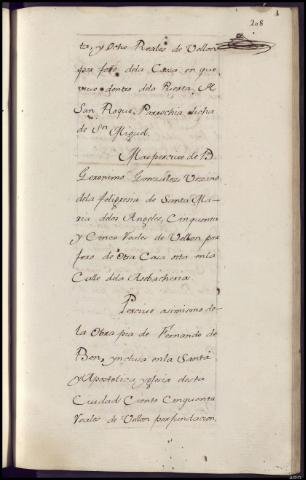 208
ta, y Ocho Reales de Vellon
por foro dela Casa en que
vive dentro dela Puerta, de
San Roque, Parrochia dicha
de Sn. Miguel.
Mas percive de Dn.
Geronimo Gonzalez Vezino
dela feligresia de Santa Ma-
ria delos Angeles, Cinquenta
y Cinco reales de Vellon por
foro de otra Casa sita en la
Calle dela Azebacheria.
Percive asimismo de
la Obra pia de Fernando de
Bon, yncluso en la Santa
y Apostolica yglesia de esta
Ciudad Ciento Cinquenta
reales de Vellon por fundacion